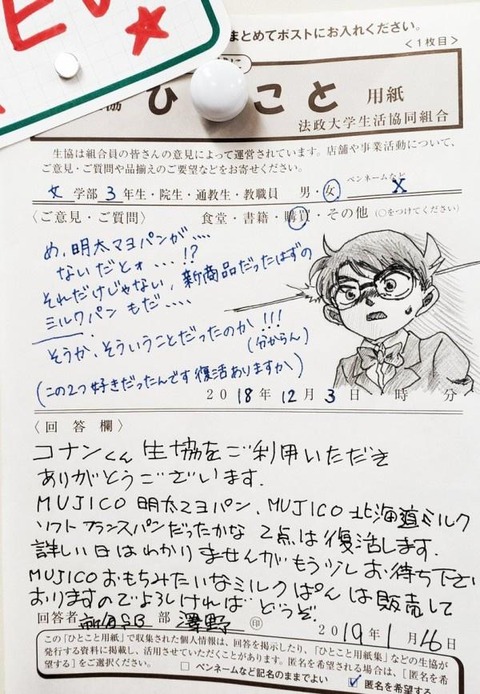 まとめてポストにお入れください。
<1枚目>
ひとこと 用紙
法政大学生活協同組合
生協は組合員の皆さんの意見によって運営されています。店舗や事業活動について、
ご意見・ご質問や品揃えのご要望などをお寄せください。
文 学部 3 年生・院生・通教生・教職員 男・女 ペンネームなど X
〈ご意見・ご質問〉 食堂・書籍・購買・その他 (○をつけてください)
め、明太マヨパンが....
ないだとォ...!?
それだけじゃない、新商品だったはずの
ミルクパン もだ....
そうか、そういうことだったのか!!!
(分からん)
(この2つ好きだったんです 復活ありますか)
2018年 12月 3日 時 分
〈回答欄〉
コナンくん 生協をご利用いただき
ありがとうございます.
MUJICO 明太マヨパン、MUJICO 北海道ミルク
ソフトフランスパンだったかな 2点は復活します.
詳しい日はわかりませんがもう少しお待ち下さい
MUJICOおもちみたいなミルクぱんは販売して
おりますのでよろしければどうぞ.
回答者 部 澤野 印
2019年 1月 16日
この「ひとこと用紙」で収集された個人情報は、回答を掲示したり、「ひとこと用紙集」などの生協が
発行する資料に掲載し、活用させていただくことがあります。匿名を希望される場合は、[匿名を希
望する]をご選択ください。
□ ペンネームなど記名のままでよい
匿名を希望する